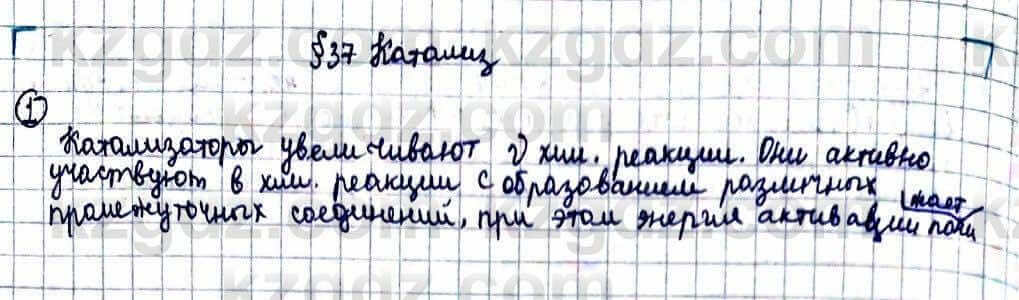 §37 Катализ
1
Катализаторы увеличивают υ хим. реакции. Они активно
участвуют в хим. реакции с образованием различных
промежуточных соединений, при этом энергия активации пони
жает
kzgdz.com